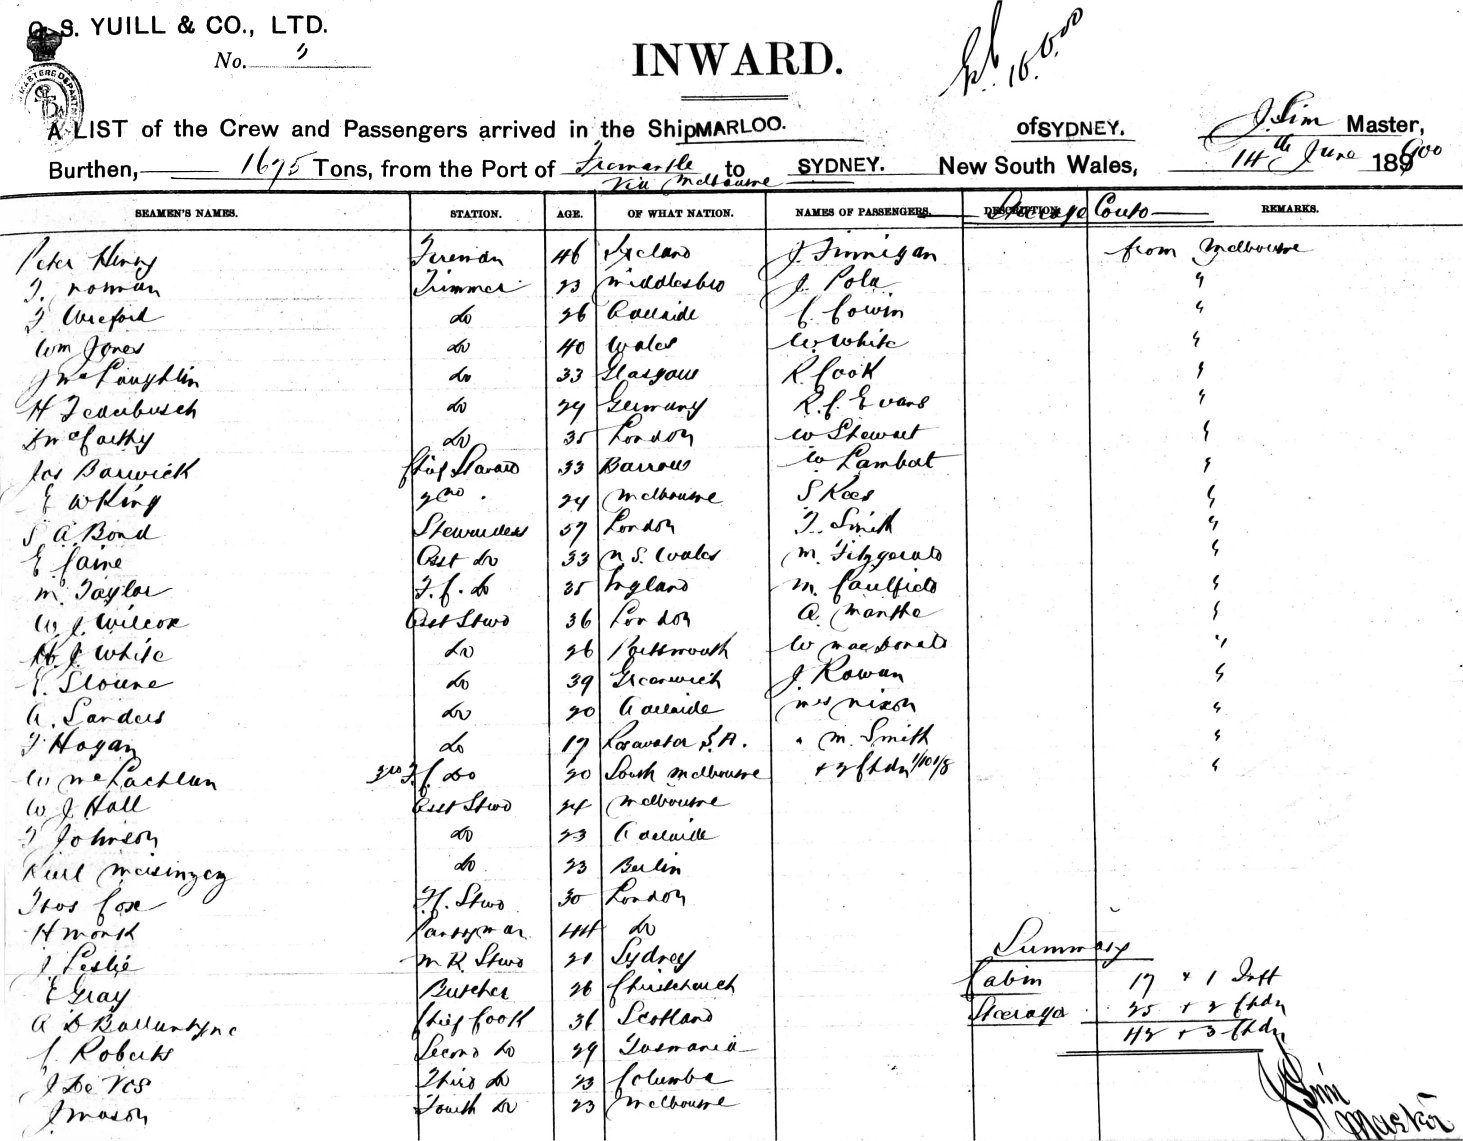 G. S. YUILL & CO., LTD.
No. 2
INWARD.
A LIST of the Crew and Passengers arrived in the Ship MARLOO. of SYDNEY. J. Sim Master,
Burthen, 1675 Tons, from the Port of Fremantle to SYDNEY. New South Wales, 14th June 1900
via Melbourne
SEAMEN'S NAMES. STATION. AGE. OF WHAT NATION. NAMES OF PASSENGERS. DESCRIPTION. Steerage Contd REMARKS.
Peter Henry Fireman 46 Ireland J. Finnigan from Melbourne
T. Norman Trimmer 23 Middlesbro J. Pola "
F Wreford Do 26 Adelaide C. Cowin "
Wm Jones Do 40 Wales W. White "
J McLoughlin Do 33 Glasgow R. Cook "
H Federbusch Do 24 Germany R. C. Evans "
D McCarthy Do 35 London W Stewart "
Jas Barwick Chief Steward 33 Barrow W Lambert "
E W King 2nd. 24 Melbourne S Kees "
S A Bond Stewardess 37 London T. Smith "
E Caine Asst Do 33 N. S. Wales M. Fitzgerald "
M. Taylor F. C. Do 35 England M. Caulfield "
W J. Wilcox Asst Stwd 36 London A. Manthe "
H. J. White Do 26 Portsmouth W MacDonald "
E. Sloane Do 39 Greenwich J. Rowan "
A. Sanders Do 20 Adelaide Mrs Nixon "
T Hogan Do 17 S.A. " M. Smith "
W McLachlan 3rd F. C. Do 20 South Melbourne + 2 Chdn "
W J Hall Asst Stwd 24 Melbourne
T Johnson Do 23 Adelaide
Karl Do 23 Berlin
Thos Cox F. C. Stwd 30 London
H Monk Pantryman 44 Do
J Leslie M. R. Stwd 21 Sydney
Summary
E Gray Butcher 26 Christchurch Cabin 17 + 1 Inft
A D Ballantyne Chief Cook 36 Scotland Steerage 25 + 2 Chdn
42 + 3 Chdn
C. Roberts Second Do 29 Tasmania
J De Vos Third Do 23 Columba
J. Mason Fourth Do 23 Melbourne
J Sim
Master